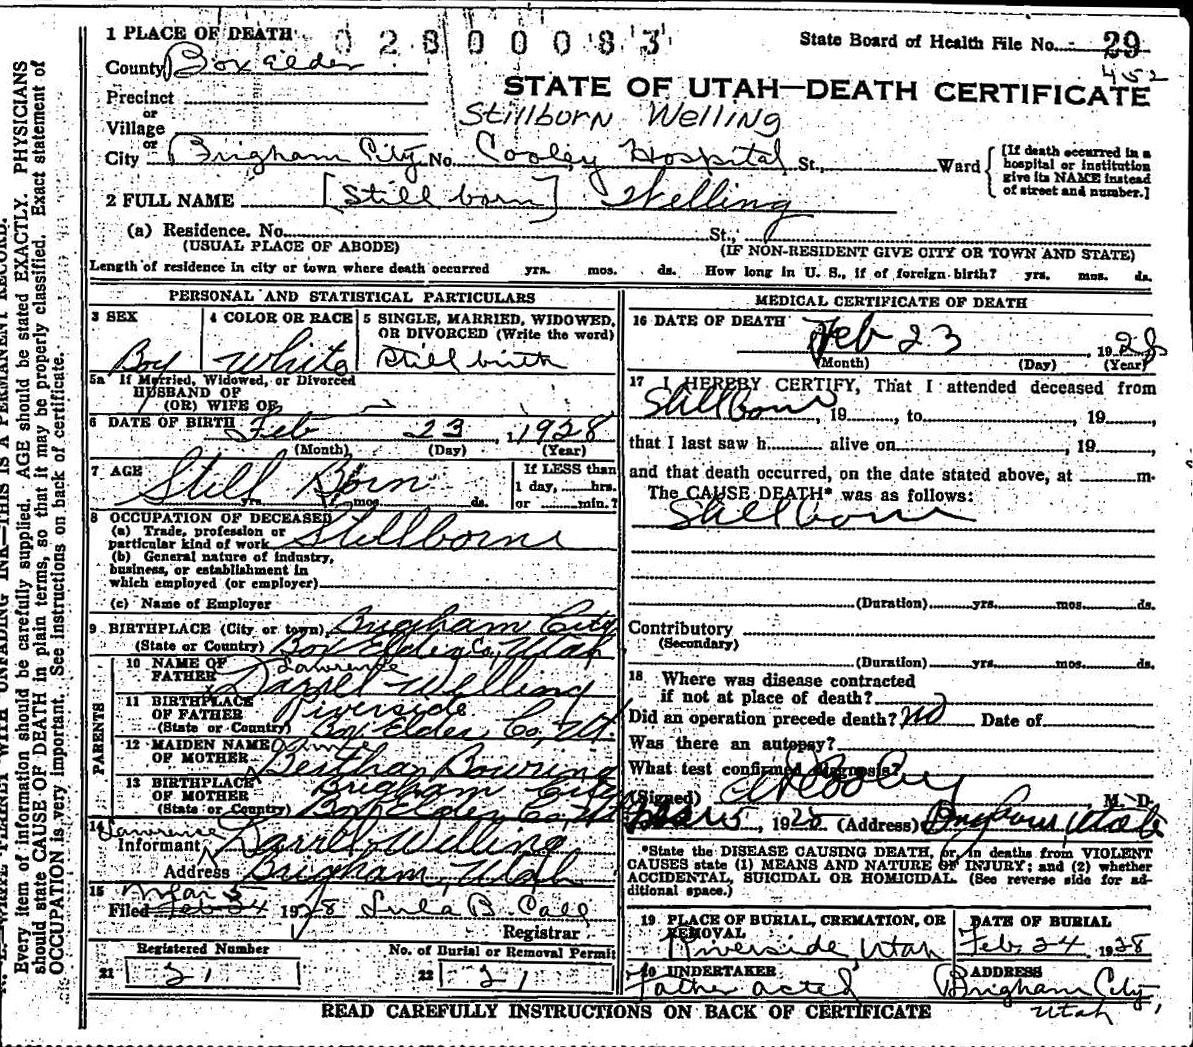 1 PLACE OF DEATH
0 2 8 0 0 0 8 3
State Board of Health File No. 29
452
County Box Elder
STATE OF UTAH—DEATH CERTIFICATE
Precinct
or
Stillborn Welling
Village
or
City Brigham City No. Cooley Hospital St., Ward
[If death occurred in a
hospital or institution
give its NAME instead
of street and number.]
2 FULL NAME [Still born] Welling
(a) Residence. No. St.,
(USUAL PLACE OF ABODE) (IF NON-RESIDENT GIVE CITY OR TOWN AND STATE)
Length of residence in city or town where death occurred yrs. mos. ds. How long in U. S., if of foreign birth? yrs. mos. ds.
PERSONAL AND STATISTICAL PARTICULARS
3 SEX 4 COLOR OR RACE 5 SINGLE, MARRIED, WIDOWED,
OR DIVORCED (Write the word)
Boy White Still birth
5a If Married, Widowed, or Divorced
HUSBAND OF
(OR) WIFE OF
6 DATE OF BIRTH Feb 23, 1928
(Month) (Day) (Year)
7 AGE Still Born
yrs. mos. ds.
If LESS than
1 day, hrs.
or min.?
8 OCCUPATION OF DECEASED
(a) Trade, profession or
particular kind of work Stillborn
(b) General nature of industry,
business, or establishment in
which employed (or employer)
(c) Name of Employer
9 BIRTHPLACE (City or town) Brigham City
(State or Country) Box Elder Co., Utah
PARENTS
10 NAME OF FATHER Lawrence
Darrel Welling
11 BIRTHPLACE OF FATHER Riverside
(State or Country) Box Elder Co, Ut.
12 MAIDEN NAME
OF MOTHER Bertha Bowring
13 BIRTHPLACE
OF MOTHER Brigham City
(State or Country) Box Elder Co, Ut
14 Lawrence
Informant Darrel Welling
Address Brigham, Utah
15 Mar 5
Filed Feb 24 1928 Lula B. Call
Registrar
Registered Number No. of Burial or Removal Permit
21 21 22 21
MEDICAL CERTIFICATE OF DEATH
16 DATE OF DEATH Feb 23, 1928
(Month) (Day) (Year)
17 I HEREBY CERTIFY, That I attended deceased from
Stillborn, 19, to, 19
that I last saw h alive on, 19
and that death occurred, on the date stated above, at m.
The CAUSE DEATH* was as follows:
Stillborn
(Duration) yrs. mos. ds.
Contributory
(Secondary)
(Duration) yrs. mos. ds.
18 Where was disease contracted
if not at place of death?
Did an operation precede death? no Date of
Was there an autopsy?
What test confirmed diagnosis?
(Signed) Cooley M. D.
Mar 5, 192 (Address) Brigham Utah
*State the DISEASE CAUSING DEATH, or, in deaths from VIOLENT
CAUSES state (1) MEANS AND NATURE OF INJURY; and (2) whether
ACCIDENTAL, SUICIDAL OR HOMICIDAL. (See reverse side for ad-
ditional space.)
19 PLACE OF BURIAL, CREMATION, OR
REMOVAL
Riverside, Utah
DATE OF BURIAL
Feb. 24 1928
20 UNDERTAKER
Father acted
ADDRESS
Brigham City,
Utah
READ CAREFULLY INSTRUCTIONS ON BACK OF CERTIFICATE
N. B.—WRITE PLAINLY WITH UNFADING INK—THIS IS A PERMANENT RECORD.
Every item of information should be carefully supplied. AGE should be stated EXACTLY. PHYSICIANS
should state CAUSE OF DEATH in plain terms, so that it may be properly classified. Exact statement of
OCCUPATION is very important. See instructions on back of certificate.